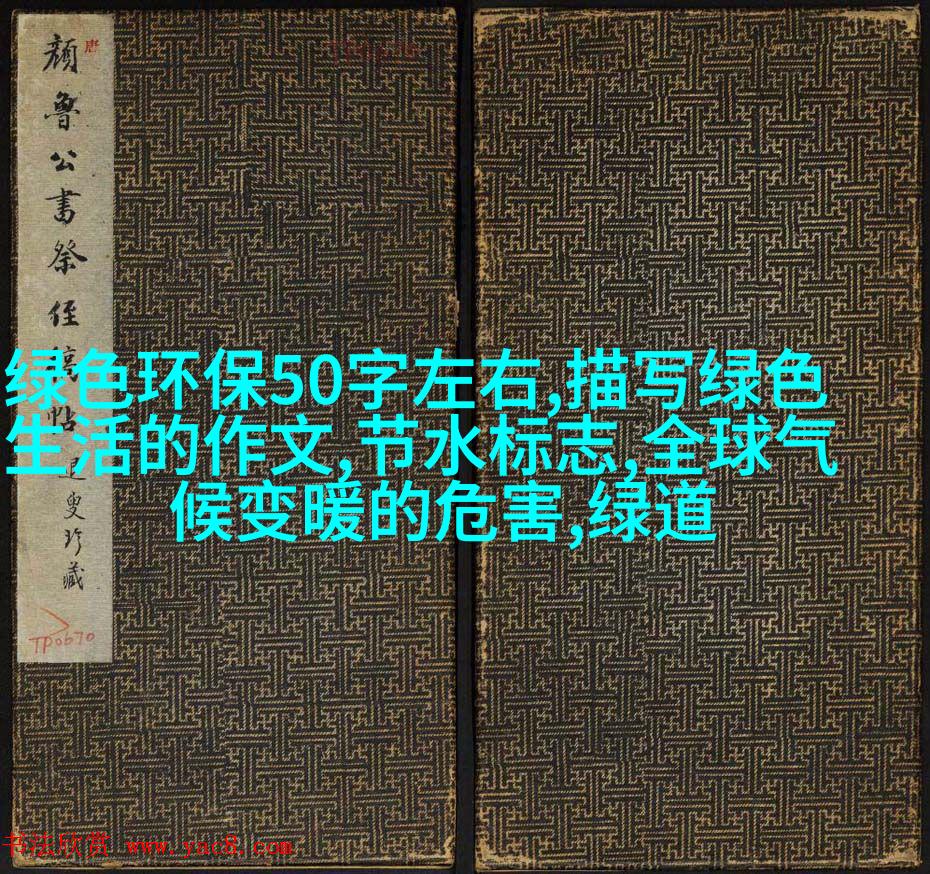 唐
顔魯公書祭侄稿
TP0670
绿色环保50字左右,描写绿色
生活的作文,节水标志,全球气
候变暖的危害,绿道
书法欣赏 www.yac8.com